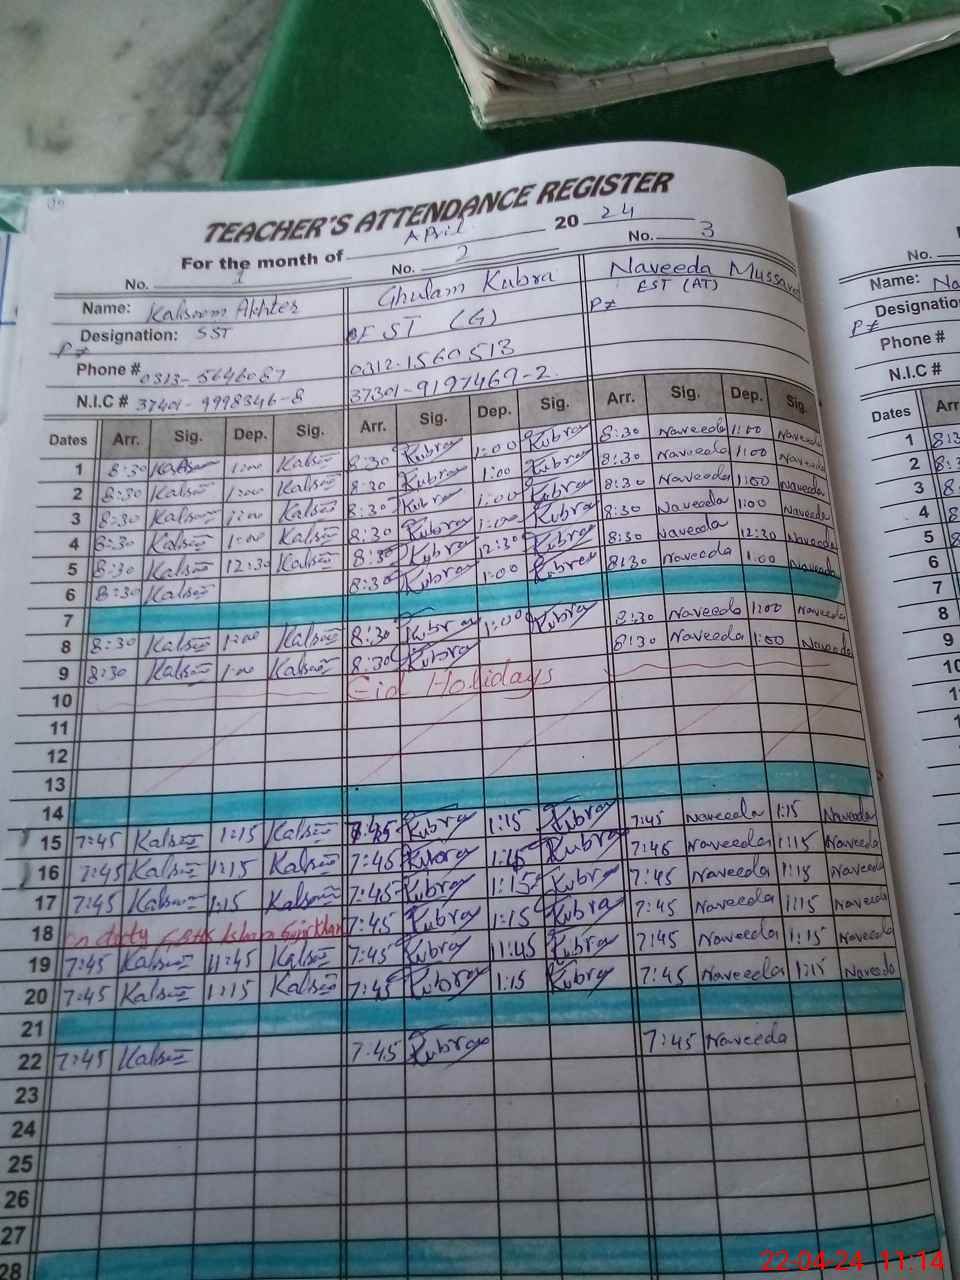 TEACHER'S ATTENDANCE REGISTER
For the month of April 20 24
No. 1 No. 2 No. 3
Name: Kalsoom Akhter Ghulam Kubra Naveeda
Designation: SST EST (G) EST (AT)
Phone # 0313-5646087 0312-1560513
N.I.C # 37401-9998346-8 37301-9197467-2
Dates Arr. Sig. Dep. Sig. Arr. Sig. Dep. Sig. Arr. Sig. Dep. Sig.
1 8:30 Kalsoom 1:00 Kalsoom 8:30 Kubra 1:00 Kubra 8:30 Naveeda 1:00 Naveeda
2 8:30 Kalsoom 1:00 Kalsoom 8:30 Kubra 1:00 Kubra 8:30 Naveeda 1:00 Naveeda
3 8:30 Kalsoom 1:00 Kalsoom 8:30 Kubra 1:00 Kubra 8:30 Naveeda 1:00 Naveeda
4 8:30 Kalsoom 1:00 Kalsoom 8:30 Kubra 1:00 Kubra 8:30 Naveeda 1:00 Naveeda
5 8:30 Kalsoom 12:30 Kalsoom 8:30 Kubra 12:30 Kubra 8:30 Naveeda 12:30 Naveeda
6 8:30 Kalsoom 8:30 Kubra 1:00 Kubra 8:30 Naveeda 1:00 Naveeda
7
8 8:30 Kalsoom 1:00 Kalsoom 8:30 Kubra 1:00 Kubra 8:30 Naveeda 1:00 Naveeda
9 8:30 Kalsoom 1:00 Kalsoom 8:30 Kubra 8:30 Naveeda 1:00 Naveeda
10 Eid Holidays
11
12
13
14
15 7:45 Kalsoom 1:15 Kalsoom 7:45 Kubra 1:15 Kubra 7:45 Naveeda 1:15 Naveeda
16 7:45 Kalsoom 1:15 Kalsoom 7:45 Kubra 1:15 Kubra 7:45 Naveeda 1:15 Naveeda
17 7:45 Kalsoom 1:15 Kalsoom 7:45 Kubra 1:15 Kubra 7:45 Naveeda 1:15 Naveeda
18 on duty 7:45 Kubra 1:15 Kubra 7:45 Naveeda 1:15 Naveeda
19 7:45 Kalsoom 11:45 Kalsoom 7:45 Kubra 11:45 Kubra 7:45 Naveeda 1:15 Naveeda
20 7:45 Kalsoom 1:15 Kalsoom 7:45 Kubra 1:15 Kubra 7:45 Naveeda 1:15 Naveeda
21
22 7:45 Kalsoom 7:45 Kubra 7:45 Naveeda
23
24
25
26
27
28
No.
Name: Na
Designation
Phone #
N.I.C #
Dates Arr
1
2
3
4
5
6
7
8
9
10
11
12
22-04-24 11:14